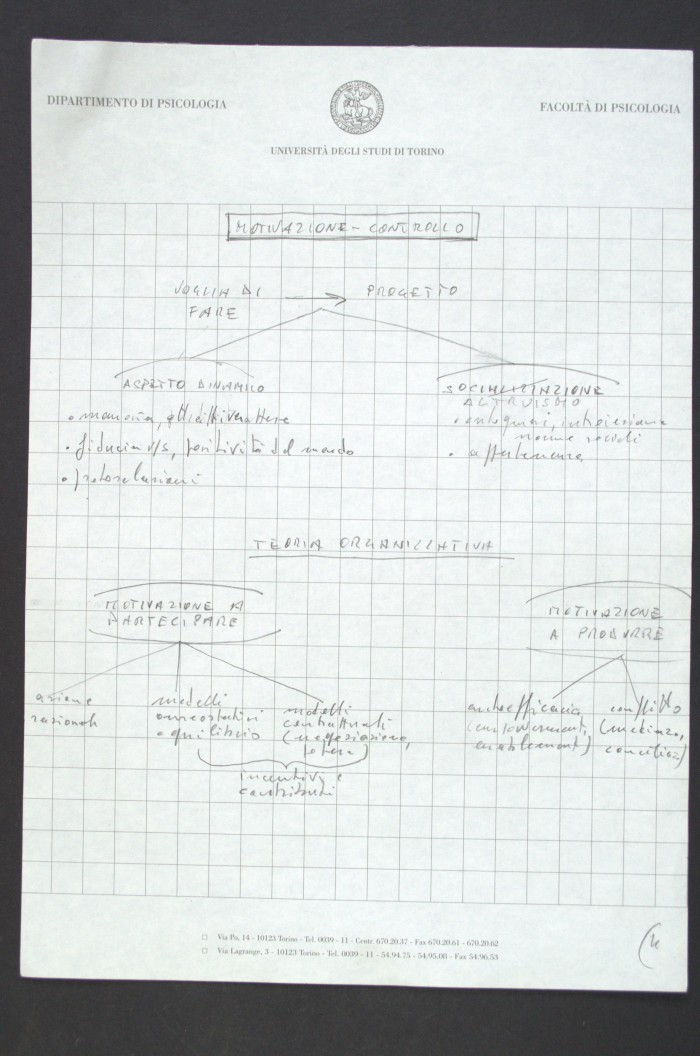 DIPARTIMENTO DI PSICOLOGIA
FACOLTÀ DI PSICOLOGIA
UNIVERSITÀ DEGLI STUDI DI TORINO
MOTIVAZIONE - CONTROLLO
VOGLIA DI FARE
PROGETTO
ASPETTO DINAMICO
• memoria,
• fiducia v/s, positività del mondo
•
SOCIALIZZAZIONE
ALTRUISMO
• introiezione
norme sociali
• appartenenza
TEORIA ORGANIZZATIVA
MOTIVAZIONE A
PARTECIPARE
MOTIVAZIONE
A PRODURRE
azione
razionale
modelli
omeostatici
equilibrio
modelli
contrattuali
(negoziazione,
potere)
incentivi e
contributi
autoefficacia
(empowerment,
enablement)
conflitto
Via Po, 14 - 10123 Torino - Tel. 0039 - 11 - Centr. 670.20.37 - Fax 670.20.61 - 670.20.62
Via Lagrange, 3 - 10123 Torino - Tel. 0039 - 11 - 54.94.75 - 54.95.08 - Fax 54.96.53